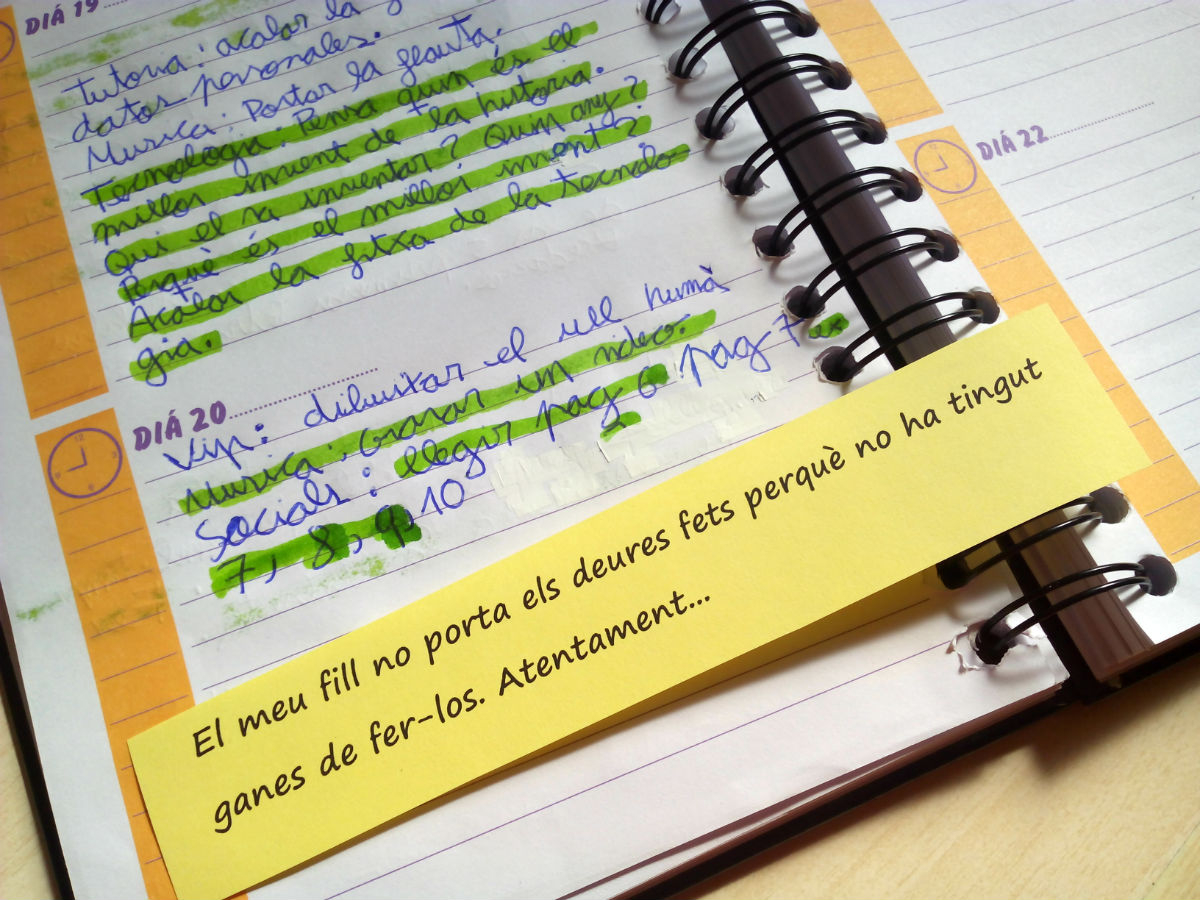 DIÁ 19
tutoria: acabar la
datos personales.
Musica: Portar la flauta.
Tecnologia: Pensa quin és el
millor invent de la historia.
Qui el va inventar? Quin any?
Perquè és el millor invent?
Acabar la fitxa de la tecnolo
gia.
DIÁ 20
Vip: dibuixar el ull humà
Musica: Gravar un video.
Socials: llegir pag 6 pag 7 ex
7, 8, 9, 10
El meu fill no porta els deures fets perquè no ha tingut
ganes de fer-los. Atentament...
DIÁ 22